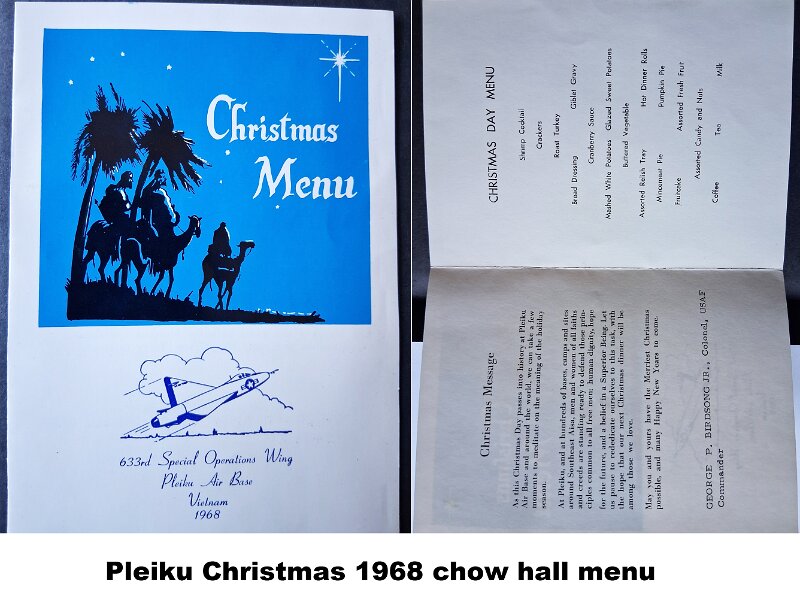 Christmas
Menu
633rd Special Operations Wing
Pleiku Air Base
Vietnam
1968
CHRISTMAS DAY MENU
Shrimp Cocktail
Crackers
Roast Turkey
Bread Dressing Giblet Gravy
Cranberry Sauce
Mashed White Potatoes Glazed Sweet Potatoes
Buttered Vegetable
Assorted Relish Tray Hot Dinner Rolls
Mincemeat Pie Pumpkin Pie
Fruitcake Assorted Fresh Fruit
Assorted Candy and Nuts
Coffee Tea Milk
Christmas Message
As this Christmas Day passes into history at Pleiku
Air Base and around the world, we can take a few
moments to meditate on the meaning of the holiday
season.
At Pleiku, and at hundreds of bases, camps and sites
around Southeast Aisa, men and women of all faiths
and creeds are standing ready to defend those prin-
ciples common to all free men; human dignity, hope
for the future, and a belief in a Superior Being. Let
us pause to rededicate ourselves to this task, with
the hope that our next Christmas dinner will be
among those we love.
May you and yours have the Merriest Christmas
possible, and many Happy New Years to come.
GEORGE P. BIRDSONG JR., Colonel, USAF
Commander
Pleiku Christmas 1968 chow hall menu